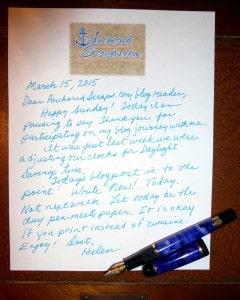 Anchored
Scraps.com
March 15, 2015
Dear AnchoredScraps.com blog reader,
Happy Sunday! Today I am
pausing to say Thank you for
participating on my blog journey with me.
It was just last week we were
adjusting our clocks for Daylight
Savings time.
Today's blog post is to the
point. Write Now! Today.
Not next week. Let today be the
day pen meets paper. It is okay
if you print instead of cursive.
Enjoy! Best,
Helen